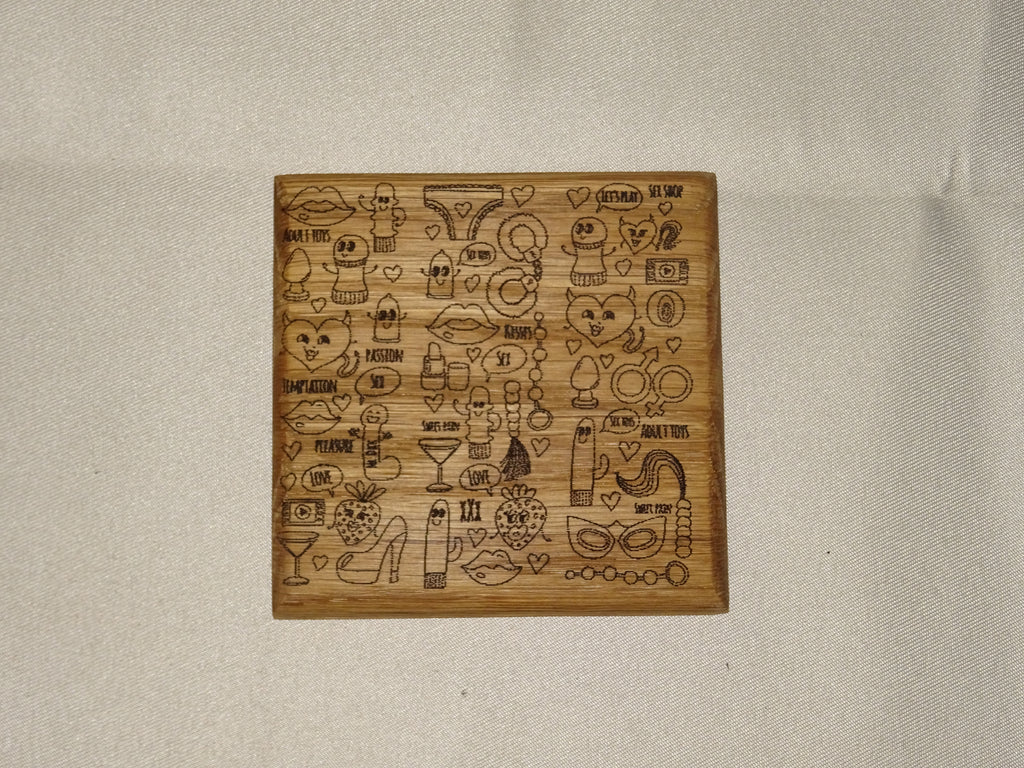 LET'S PLAY
SEX SHOP
ADULT TOYS
SEX TOYS
KISSES
PASSION
SEX
TEMPTATION
SEX
SWEET PAIN
SEX TOYS
ADULT TOYS
PLEASURE
MR. DIX
LOVE
LOVE
XXX
SWEET PAIN